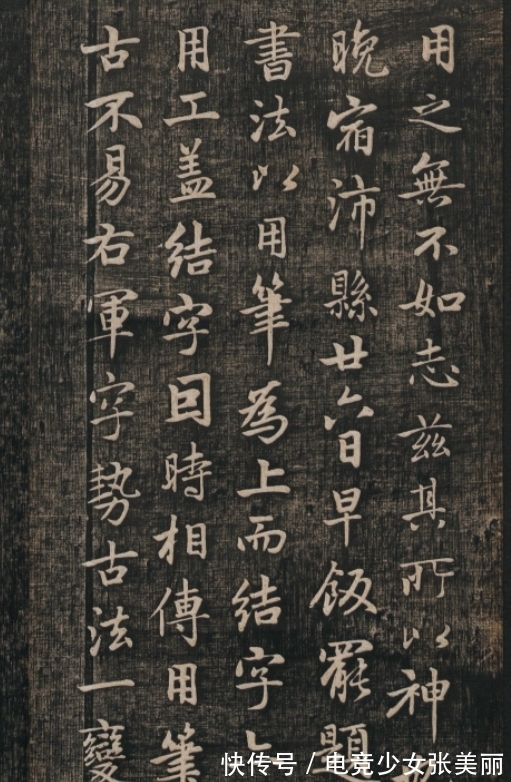 用之無不如志兹其所以神
晚宿沛縣廿六日早飯罷題
書法以用筆為上而結字
用工盖結字因時相傳用筆
古不易右軍字勢古法一變
快传号 / 电竞少女张美丽